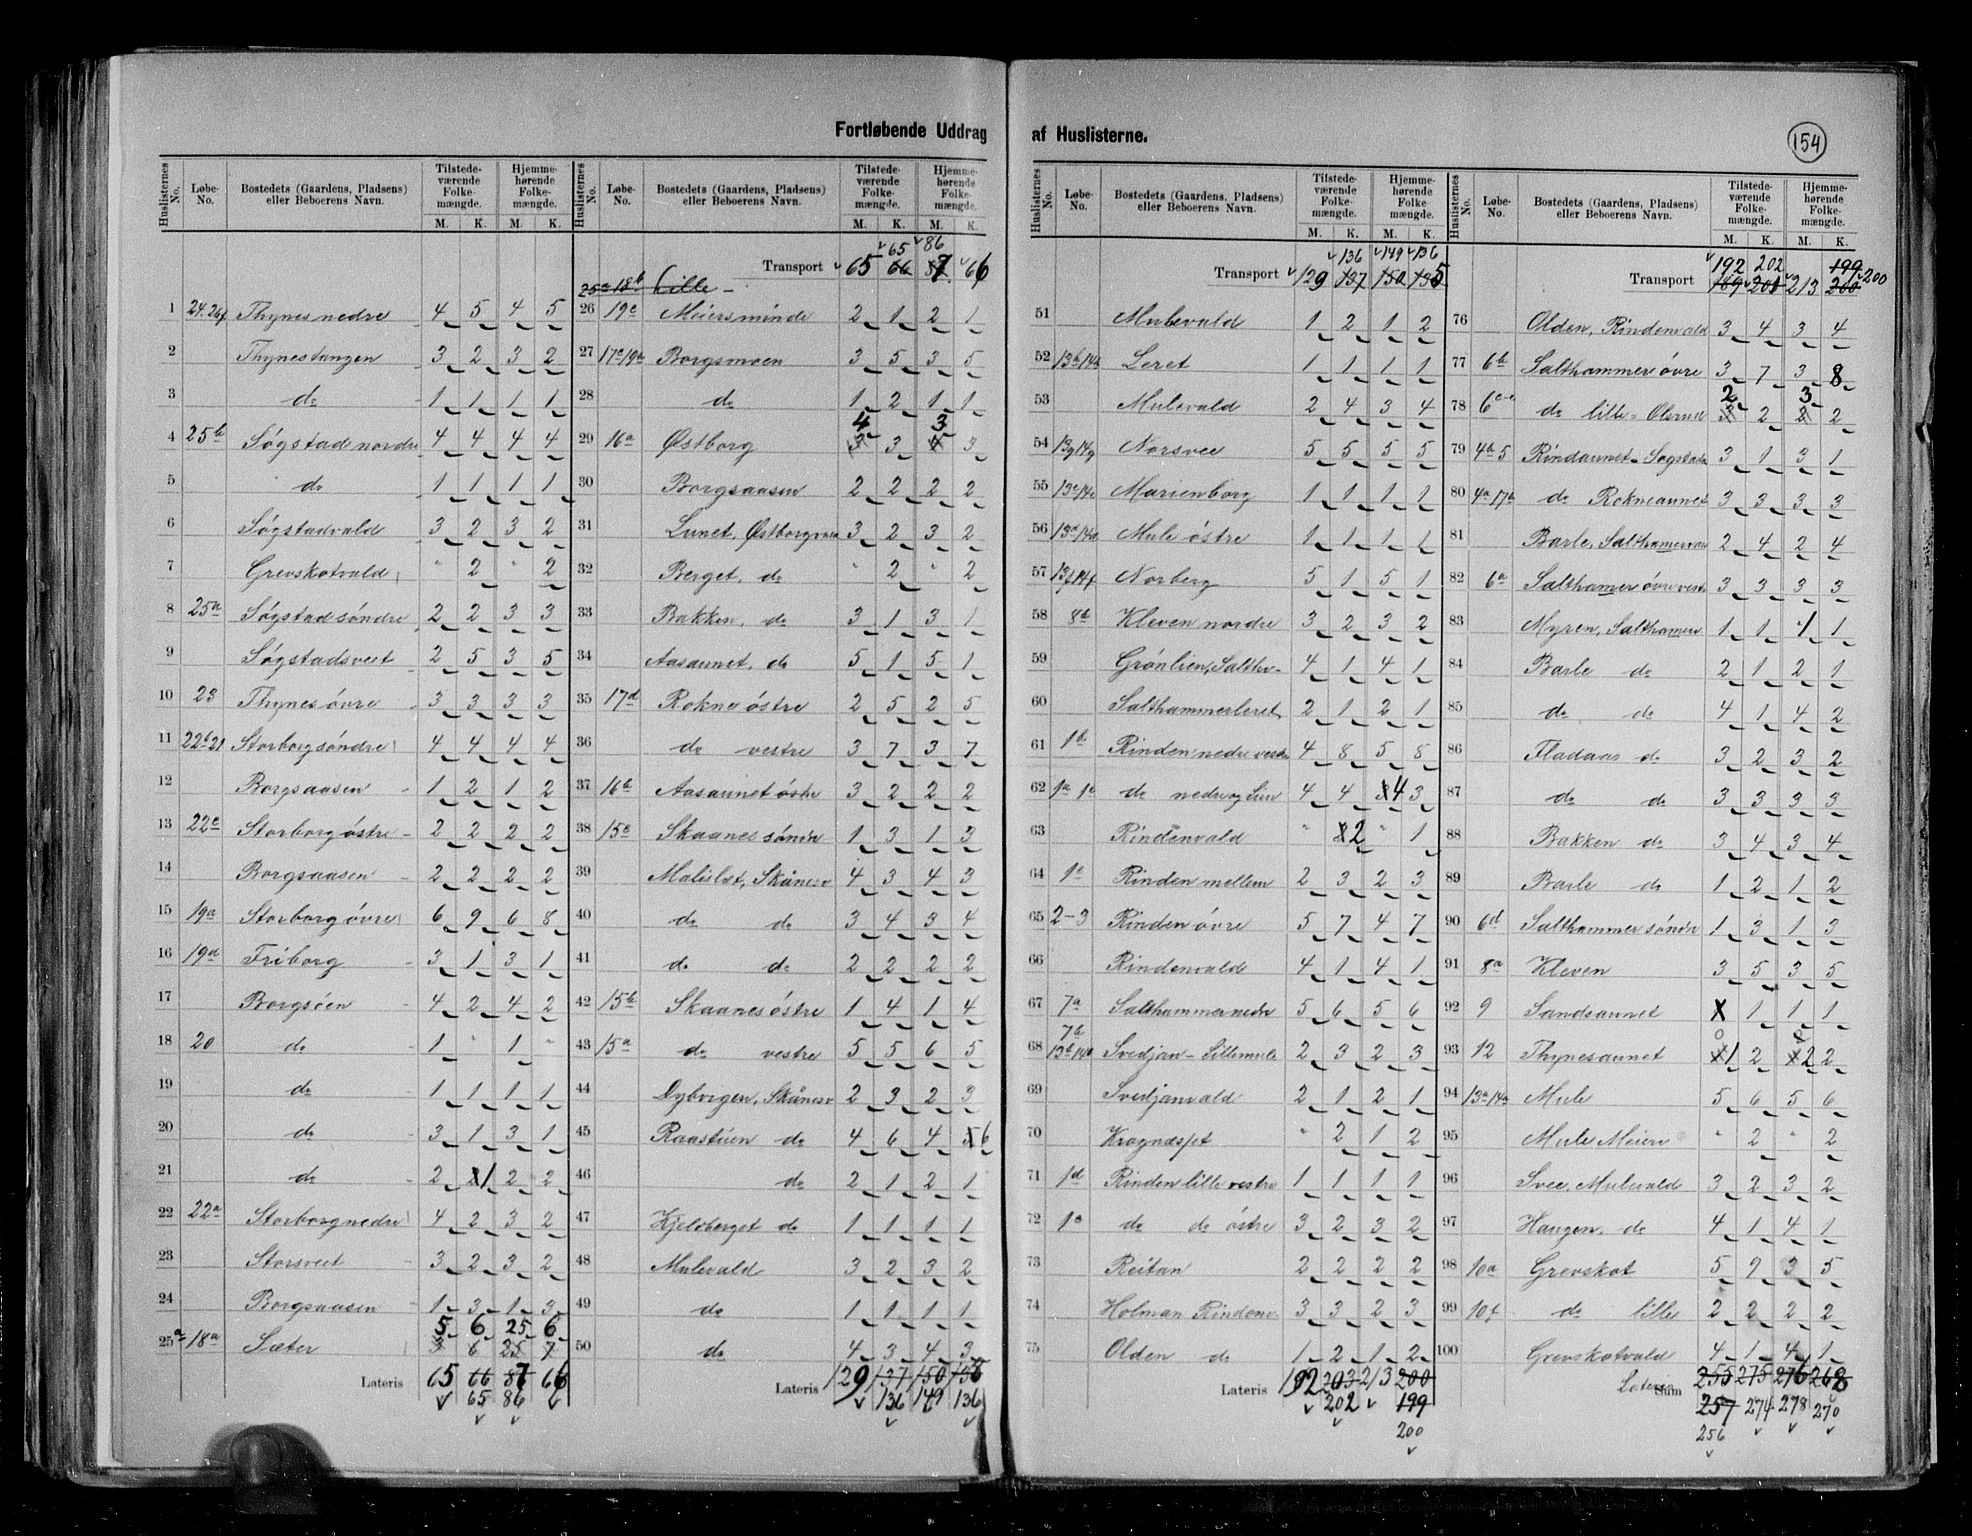 Fortløbende Uddrag af Huslisterne.
154
Huslisternes No. Løbe-No. Bostedets (Gaardens, Pladsen) eller Beboerens Navn. Tilstedeværende Folkemængde. M. K. Hjemmehørende Folkemængde. M. K.
1 24.26f Thynes nedre 4 5 4 5
2 Thynestangen 3 2 3 2
3 do 1 1 1 1
4 25b Søgstad nordre 4 4 4 4
5 do 1 1 1 1
6 Søgstadvald 3 2 3 2
7 Grevskotvald " 2 " 2
8 25a Søgstad søndre 2 2 3 3
9 Søgstadsveet 2 5 3 5
10 23 Thynes övre 3 3 3 3
11 22b 21 Storborg søndre 4 4 4 4
12 Borgsaasen 1 2 1 2
13 22c Storborg östre 2 2 2 2
14 Borgsaasen 2 2 2 2
15 19a Storborg övre 6 9 6 8
16 19a Friborg 3 1 3 1
17 Borgsöen 4 2 4 2
18 20 do 1 " 1 "
19 do 1 1 1 1
20 do 3 1 3 1
21 do 2 1 2 2
22 22a Storborg nedre 4 2 3 2
23 Storsveet 3 2 3 2
24 Borgsaasen 1 3 1 3
5 6 25 6
25a 18a Sæter 6 25 7
Lateris 65 66 87 66
65 86
Huslisternes No. Løbe-No. Bostedets (Gaardens, Pladsen) eller Beboerens Navn. Tilstedeværende Folkemængde. M. K. Hjemmehørende Folkemængde. M. K.
65 86
Transport 65 66 87 66
25a 18b Lille
26 19c Meiersminde 2 1 2 1
27 17c 19b Borgsmoen 3 5 3 5
28 do 1 2 1 1
4 3
29 16a Østborg 3 3 4 3
30 Borgsaasen 2 2 2 2
31 Lunet, Østborgvald 3 2 3 2
32 Berget, do " 2 " 2
33 Bakken, do 3 1 3 1
34 Aasaunet, do 5 1 5 1
35 17d Rokne östre 2 5 2 5
36 do vestre 3 7 3 7
37 16b Aasaunet östre 3 2 2 2
38 15c Skaanes söndre 1 3 1 3
39 Malislæt, Skånesv 4 3 4 3
40 do do 3 4 3 4
41 do do 2 2 2 2
42 15b Skaanes östre 1 4 1 4
43 15a do vestre 5 5 6 5
44 Dybvigen, Skånesv 2 3 2 3
45 Raastuen do 4 6 4 6
46 do 2 1 2 1
47 Kjelsberget do 1 1 1 1
48 Mulevald 3 2 3 2
49 do 1 1 1 1
50 do 4 3 4 3
Lateris 129 137 150 136
136 149 136
Huslisternes No. Løbe-No. Bostedets (Gaardens, Pladsen) eller Beboerens Navn. Tilstedeværende Folkemængde. M. K. Hjemmehørende Folkemængde. M. K.
136 149 136
Transport 129 137 150 135
51 Mulevald 1 2 1 2
52 13h 14h Leret 1 1 1 1
53 Mulevald 2 4 3 4
54 13g 14g Norsvee 5 5 5 5
55 13e 14e Marienborg 1 1 1 1
56 13d 14d Mule östre 1 1 1 1
57 13f 14f Norberg 5 1 5 1
58 8b Kleven nordre 3 2 3 2
59 Grönlien, Salth 4 1 4 1
60 Salthammerleret 2 1 2 1
61 1b Rinden nedre vestre 4 8 5 8
62 1a 1e do nedre og Lien 4 4 4 3
63 Rindenvald " 2 " 1
64 1c Rinden mellem 2 3 2 3
65 2-3 Rinden övre 5 7 4 7
66 Rindenvald 4 1 4 1
67 7a Salthammer nedre 5 6 5 6
7b
68 13b 14b Svedjan Lillemule 2 3 2 3
69 Svedjanvald 2 1 2 1
70 Krognæsset " 2 1 2
71 1d Rinden lille vestre 1 1 1 1
72 1e do do östre 3 2 3 2
73 Reitan 2 2 2 2
74 Holman Rindenv 3 3 2 3
75 Olden do 1 2 1 2
Lateris 192 203 213 200
202 199
200
Huslisternes No. Løbe-No. Bostedets (Gaardens, Pladsen) eller Beboerens Navn. Tilstedeværende Folkemængde. M. K. Hjemmehørende Folkemængde. M. K.
192 202 199
Transport 189 203 213 200 200
76 Olden, Rindenvald 3 4 3 4
77 6b Salthammer övre 3 7 3 8
2 3
78 6c-e do lille 3 2 2 2
79 4b 5 Rindaunet Søgstad 3 1 3 1
80 4a 17b do Rokneaunet 3 3 3 3
81 Barle, Salthamervald 2 4 2 4
82 6a Salthamer övre vestre 3 3 3 3
83 Myren, Salthamerv 1 1 1 1
84 Barle do 2 1 2 1
85 do do 4 1 4 2
86 Fladaas do 3 2 3 2
87 do do 3 3 3 3
88 Bakken do 3 4 3 4
89 Barle do 1 2 1 2
90 6d Salthammer söndre 1 3 1 3
91 8a Kleven 3 5 3 5
92 9 Sandsaunet 1 1 1
0 2
93 12 Thynesaunet 1 2 2 2
94 13a 14a Mule 5 6 5 6
95 Mule Meieri " 2 " 2
96 Svee, Mulevald 3 2 3 2
97 Haugen, do 4 1 4 1
98 10a Grevskot 5 9 3 5
99 10f do lille 2 2 2 2
100 Grevskotvald 4 1 4 1
Lateris Sum 255 275 276 268
257 274 278 270
256